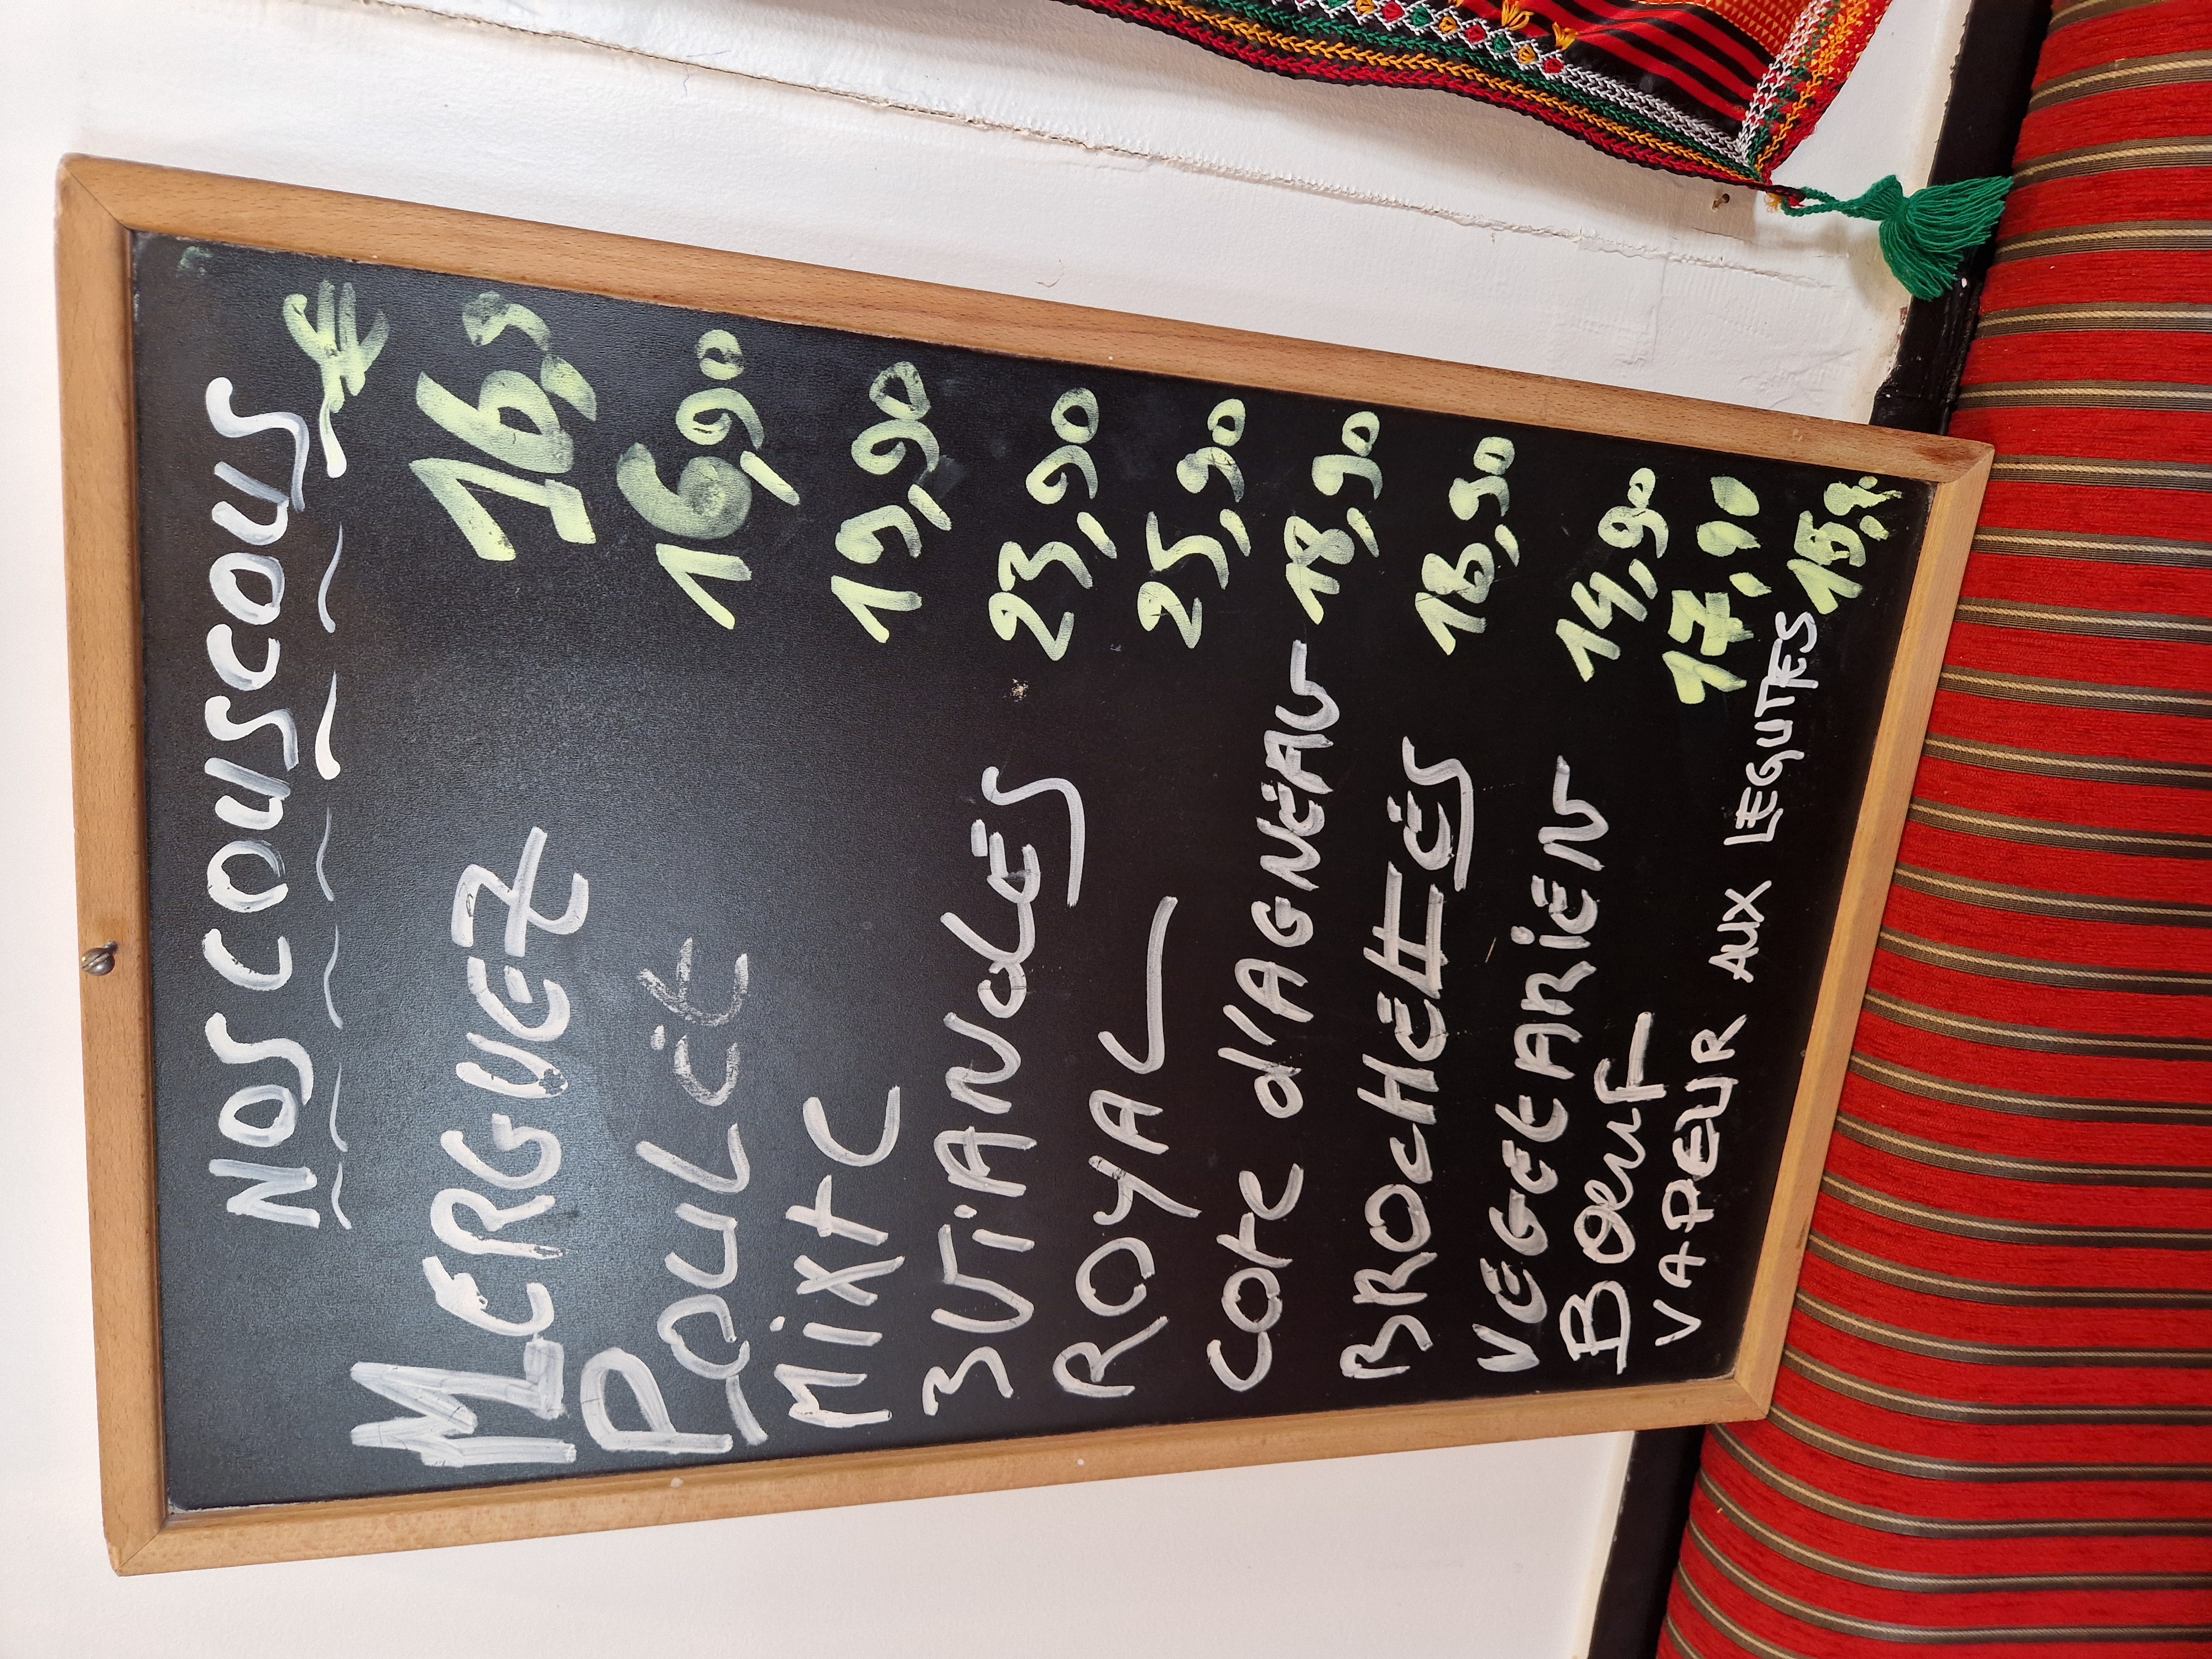 NOS COUSCOUS €
MERGUEZ 16,5
POULET 16,90
MIXTE 19,90
3 VIANDES 23,90
ROYAL 25,90
COTE D'AGNEAU 18,90
BROCHETTES 18,90
VEGETARIEN 14,90
BOEUF 17,90
VAPEUR AUX LEGUTES